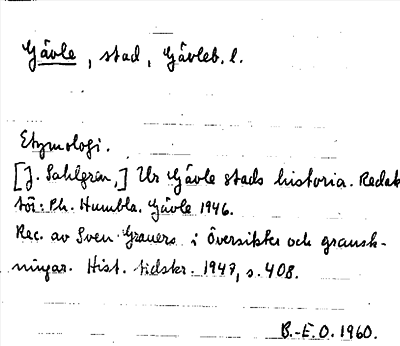 Gävle, stad, Gävleb. l.
Etymologi.
[J. Sahlgren,] Ur Gävle stads historia. Redak
tör: Ph. Humbla. Gävle 1946.
Rec. av Sven Grauers i Översikter och gransk-
ningar. Hist. tidskr. 1947, s. 408.
B.-E.O. 1960.